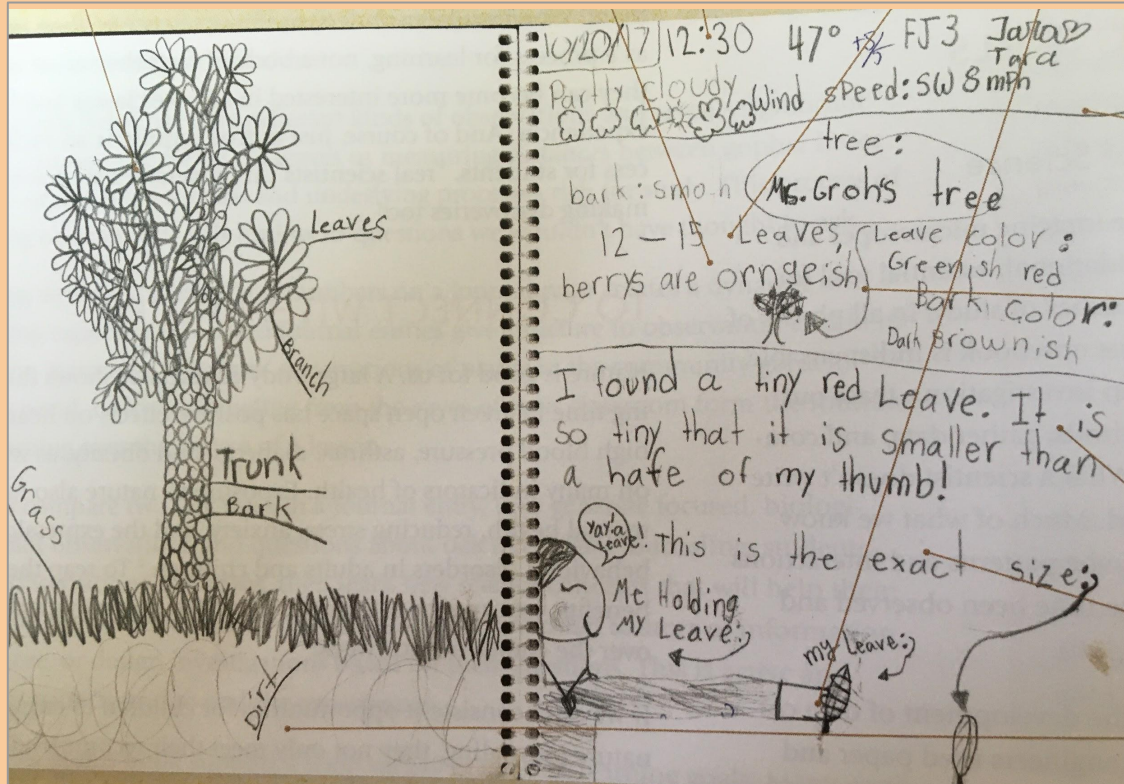 Leaves
Branch
Trunk
Bark
Grass
Dirt
10/20/17 12:30 47° FJ3
Tara
Partly cloudy Wind speed: SW 8 mph
tree:
Ms. Groh's tree
bark: smooth
12 - 15 Leaves,
berrys are orngeish
Leave color:
Greenish red
Bark color:
Dark Brownish
I found a tiny red Leave. It is
so tiny that it is smaller than
a hafe of my thumb!
Yay! a Leave!
This is the exact size:
Me Holding
My Leave:
my Leave: